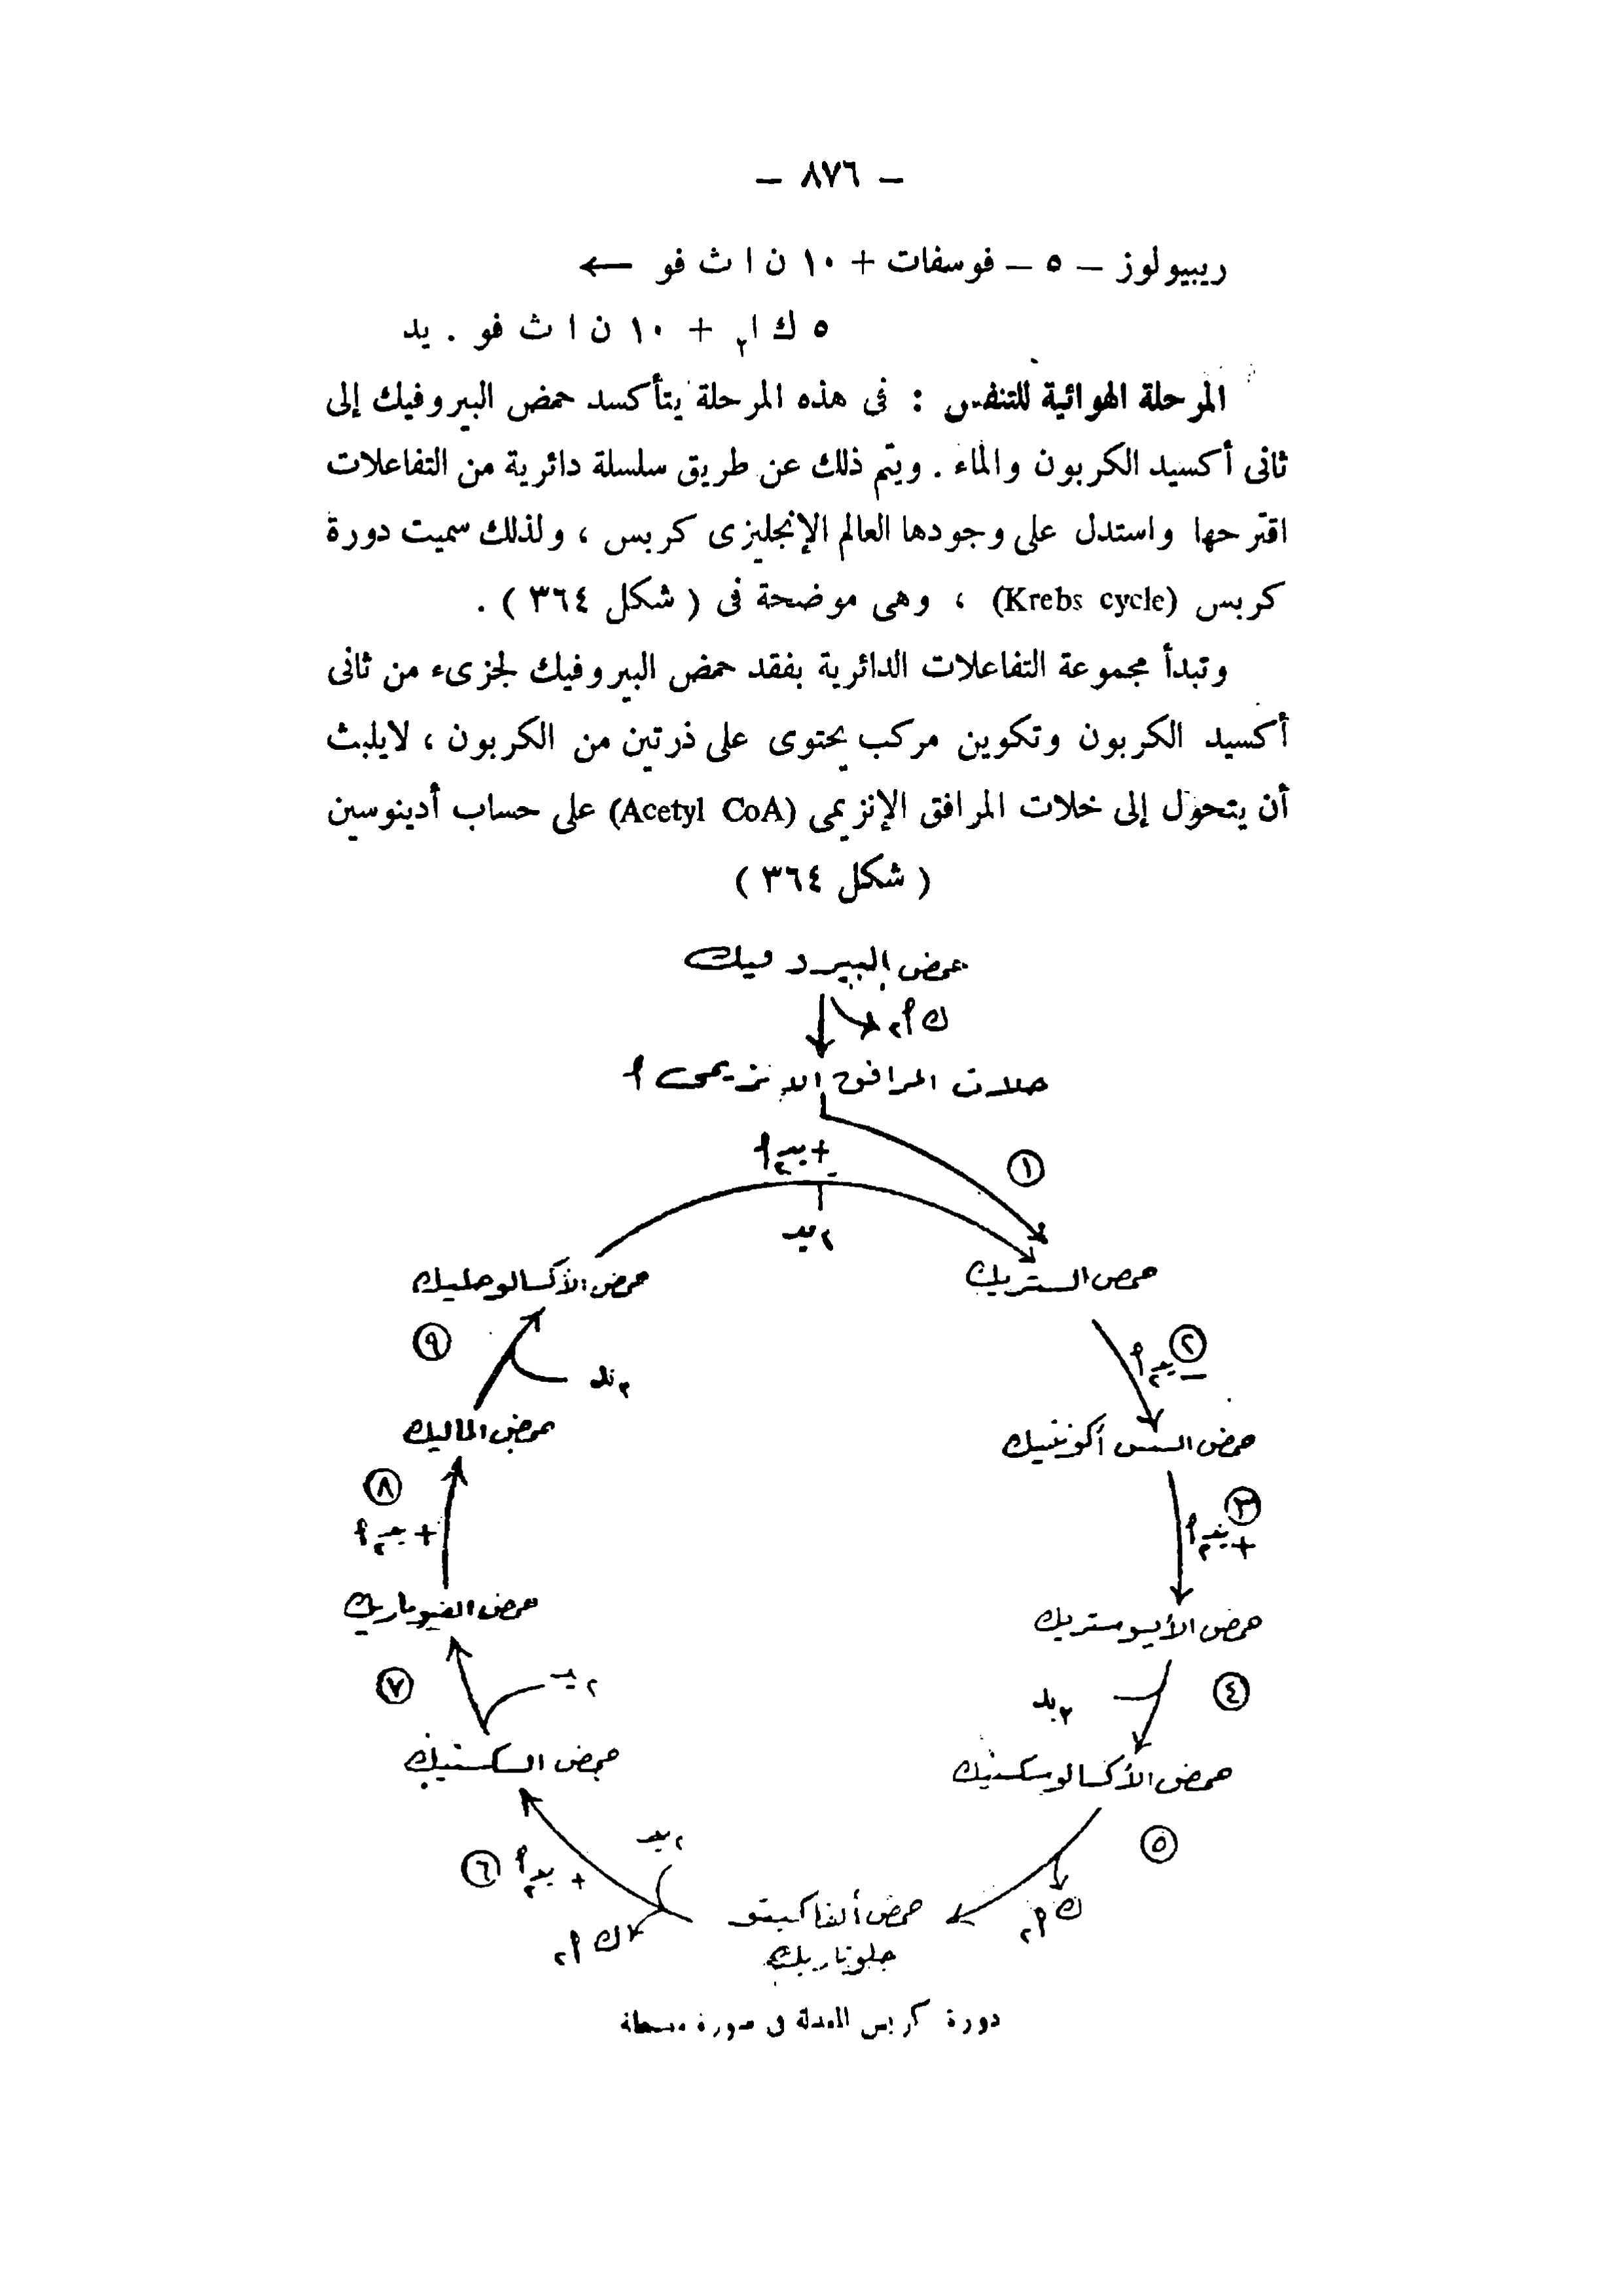 — ٨٧٦ —
ريبيولوز — ٥ — فوسفات + ١٠ ن ا ث فو ←
٥ ك ا٢ + ١٠ ن ا ث فو . يد
المرحلة الهوائية للتنفس : فى هذه المرحلة يتأكسد حمض البيروفيك إلى
ثانى أكسيد الكربون والماء . ويتم ذلك عن طريق سلسلة دائرية من التفاعلات
اقترحها واستدل على وجودها العالم الإنجليزى كربس ، ولذلك سميت دورة
كربس (Krebs cycle) ، وهى موضحة فى ( شكل ٣٦٤ ) .
وتبدأ مجموعة التفاعلات الدائرية بفقد حمض البيروفيك لجزىء من ثانى
أكسيد الكربون وتكوين مركب يحتوى على ذرتين من الكربون ، لايلبث
أن يتحول إلى خلات المرافق الإنزيمى (Acetyl CoA) على حساب أدينوسين
( شكل ٣٦٤ )
حمض البيروفيك
ك أ٢
خلات المرافق الإنزيمى أ
+ يد٢ أ
١
٢ يد
حمض الأكسالوخليك
حمض الستريك
٩
٢ يد
٢
— يد٢ أ
حمض الماليك
حمض السس أكونيتيك
٨
+ يد٢ أ
٣
+ يد٢ أ
حمض الفيوماريك
حمض الأيسوستريك
٧
٢ يد
٢ يد
٤
حمض السكسنيك
حمض الأكسالوسكسنيك
٦
+ يد٢ أ
٢ يد
٥
ك أ٢
حمض ألفا كيتو
ك أ٢
جلوتاريك
دورة كربس المعدلة فى صورة مبسطة